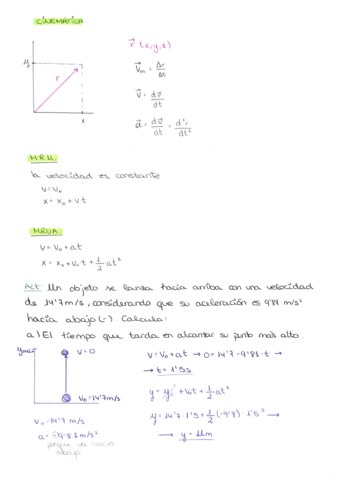 CINEMÁTICA
r⃗ (x,y,z)
y
r
x
V⃗m = Δr/Δt
V⃗ = dr⃗/dt
a⃗ = dv⃗/dt = d²r/dt²
M.R.U.
la velocidad es constante
V=V₀
x = x₀ + v·t
MRUA
V = V₀ + at
x = x₀ + V₀·t + 1/2 at²
Act Un objeto se lanza hacia arriba con una velocidad
de 14'7 m/s, considerando que su aceleración es 9'81 m/s²
hacia abajo (-). Calcula:
a) El tiempo que tarda en alcanzar su punto más alto.
ymax
V=0
V₀=14'7m/s
V₀=14'7 m/s
a=-9'81m/s²
porque va hacia
abajo
V=V₀+at → 0=14'7-9'81·t →
→ t = 1'5s
y = y₀ + V₀t + 1/2 at²
y = 14'7·1'5 + 1/2 (-9'8)·1'5² →
→ y = 11m